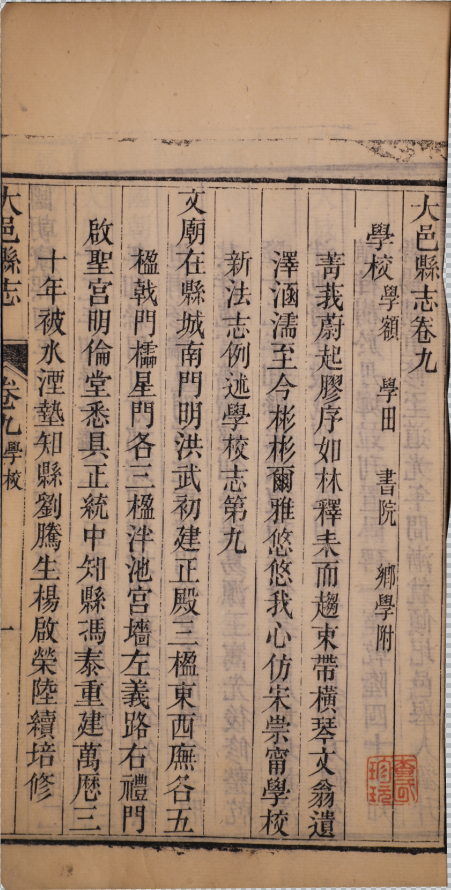 大邑縣志卷九
學校 學額 學田 書院 鄉學附
菁莪蔚起膠序如林釋耒而趨束帶橫琴文翁遺
澤涵濡至今彬彬爾雅悠悠我心仿宋崇甯學校
新法志例述學校志第九
文廟在縣城南門明洪武初建正殿三楹東西廡各五
楹戟門櫺星門各三楹泮池宮墻左義路右禮門
啟聖宮明倫堂悉具正統中知縣馮泰重建萬歷三
十年被水湮墊知縣劉騰生楊啟榮陸續培修
大邑縣志 卷九 學校 一